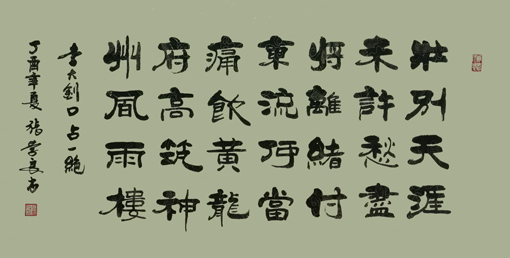 壯別天涯
未許愁盡
將離緒付
東流何當
痛飲黄龍
府高筑神
州風雨樓
李大釗口占一絕
丁酉年夏 張